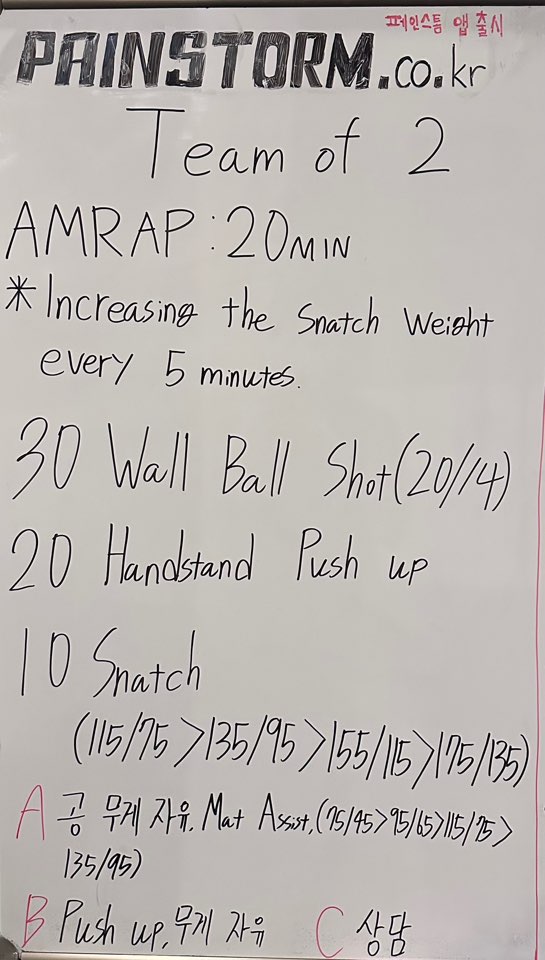 페인스톰 앱 출시
PAINSTORM.co.kr
Team of 2
AMRAP : 20MIN
* Increasing the Snatch Weight
every 5 minutes.
30 Wall Ball Shot(20/14)
20 Handstand Push up
10 Snatch
(115/75 > 135/95 > 155/115 > 175/135)
A 공 무게 자유, Mat Assist, (75/45 > 95/65 > 115/75 >
135/95)
B Push up, 무게 자유 C 상담